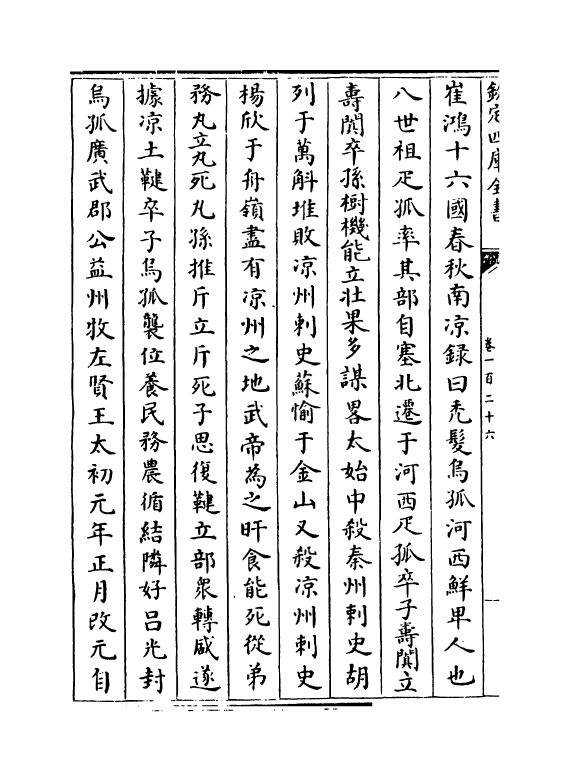 欽定四庫全書
卷一百二十六
崔鴻十六國春秋南凉録曰禿髮烏孤河西鮮卑人也
八世祖疋孤率其部自塞北遷于河西疋孤卒子壽闐立
壽闐卒孫樹機能立壯果多謀畧太始中殺秦州刺史胡
列于萬斛堆敗凉州刺史蘇愉于金山又殺凉州刺史
楊欣于舟嶺盡有凉州之地武帝為之旰食能死從弟
務丸立丸死丸孫推斤立斤死子思復鞬立部衆轉盛遂
據凉土鞬卒子烏孤襲位養民務農循結隣好吕光封
烏孤廣武郡公益州牧左賢王太初元年正月改元自